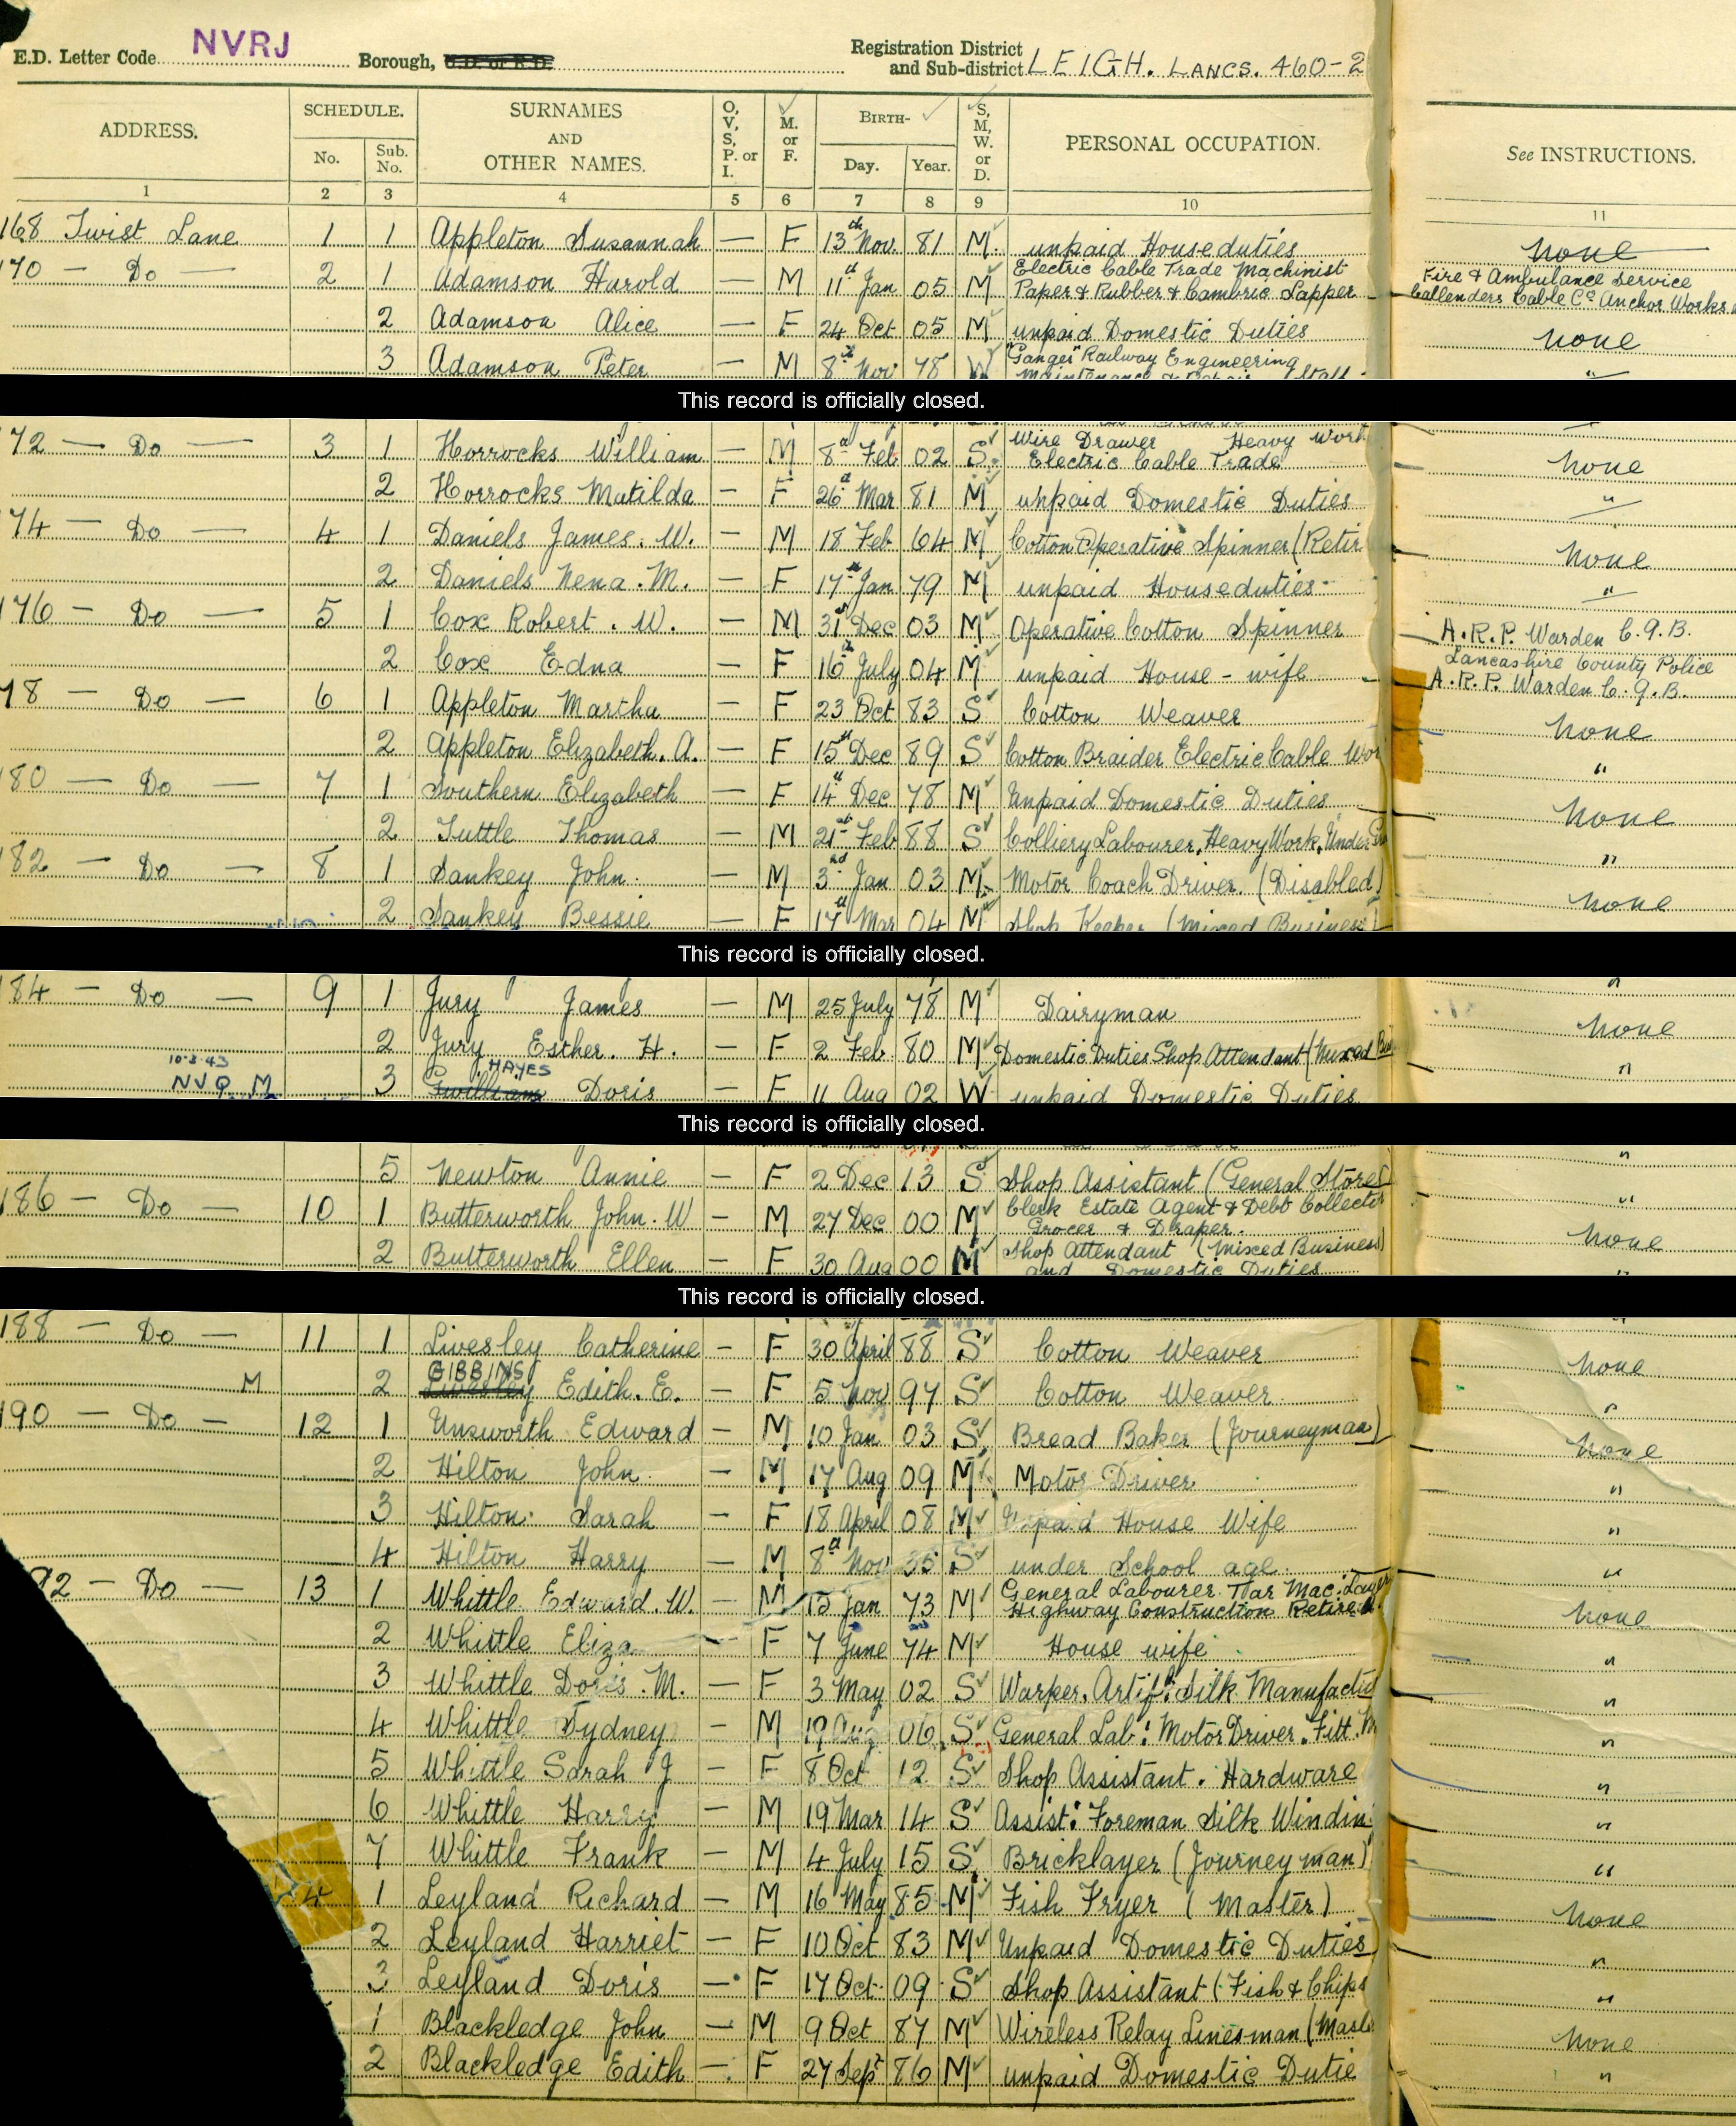 E.D. Letter Code NVRJ Borough, U.D. or R.D. Registration District and Sub-district LEIGH. LANCS. 460-2
ADDRESS. SCHEDULE. SURNAMES AND OTHER NAMES. O, V, S, P. or I. M. or F. BIRTH- S, M, W. or D. PERSONAL OCCUPATION. See INSTRUCTIONS.
No. Sub. No. Day. Year.
1 2 3 4 5 6 7 8 9 10 11
168 Twist Lane 1 1 Appleton Susannah — F 13th Nov. 81 M. unpaid House duties none
170 — Do — 2 1 Adamson Harold — M 11th Jan 05 M Electric Cable Trade Machinist Paper & Rubber & Cambric Lapper Fire & Ambulance Service Callenders Cable Co Anchor Works
2 Adamson Alice — F 24 Oct 05 M unpaid Domestic Duties none
3 Adamson Peter — M 8th Nov 78 W "Ganger" Railway Engineering Maintenance & Repair Staff "
This record is officially closed.
72 — Do — 3 1 Horrocks William — M 8th Feb 02 S. Wire Drawer Heavy Work Electric Cable Trade none
2 Horrocks Matilda — F 26th Mar 81 M unpaid Domestic Duties "
74 — Do — 4 1 Daniels James. W. — M 18 Feb 64 M Cotton Operative Spinner (Retir none
2 Daniels Nena. M. — F 17th Jan 79 M unpaid House duties "
176 — Do — 5 1 Cox Robert. W. — M 31st Dec 03 M Operative Cotton Spinner A.R.P. Warden C.G.B. Lancashire County Police
2 Cox Edna — F 16th July 04 M unpaid House-wife A.R.P. Warden C.G.B.
78 — Do — 6 1 Appleton Martha — F 23 Oct 83 S Cotton Weaver none
2 Appleton Elizabeth. A. — F 15th Dec 89 S Cotton Braider Electric Cable Wor "
80 — Do — 7 1 Southern Elizabeth — F 14th Dec 78 M Unpaid Domestic Duties none
2 Tuttle Thomas — M 21st Feb 88 S Colliery Labourer. Heavy Work. Under Gr "
182 — Do — 8 1 Sankey John. — M 3rd Jan 03 M. Motor Coach Driver. (Disabled) none
2 Sankey Bessie — F 17th Mar 04 M Shop Keeper (Mixed Business)
This record is officially closed.
"
184 — Do — 9 1 Jury James — M 25 July 78 M Dairyman none
2 Jury Esther. H. — F 2 Feb. 80 M Domestic Duties Shop Attendant (Mixed Bus "
10-3-43 HAYES
NVQ M 3 Doris — F 11 Aug 02 W unpaid Domestic Duties
This record is officially closed.
"
5 Newton Annie — F 2 Dec 13 S Shop Assistant (General Stores) "
186 — Do — 10 1 Butterworth John. W — M 27 Dec 00 M Clerk Estate Agent & Debt Collector Grocer & Draper. none
2 Butterworth Ellen — F 30 Aug 00 M Shop Attendant (Mixed Business) and Domestic Duties "
This record is officially closed.
188 — Do — 11 1 Livesley Catherine — F 30 April 88 S Cotton Weaver none
GIBBINS
M 2 Livesley Edith. E. — F 5 Nov 97 S Cotton Weaver "
190 — Do — 12 1 Unsworth Edward — M 10 Jan 03 S Bread Baker (Journeyman) none
2 Hilton John. — M 17 Aug 09 M Motor Driver "
3 Hilton Sarah — F 18 April 08 M Unpaid House Wife "
4 Hilton Harry — M 8th Nov 35 S under School age "
92 — Do — 13 1 Whittle Edward. W. — M 15 Jan 73 M General Labourer Tar Mac. Layer Highway Construction Retired. none
2 Whittle Eliza — F 7 June 74 M House wife "
3 Whittle Doris. M. — F 3 May 02 S Warper. Artifl. Silk Manufactu "
4 Whittle Sydney — M 19 Aug 06 S General Lab: Motor Driver. Fitt. M "
5 Whittle Sarah J — F 8 Oct 12 S Shop Assistant. Hardware "
6 Whittle Harry — M 19 Mar 14 S Assist: Foreman Silk Windin "
7 Whittle Frank — M 4 July 15 S Bricklayer (Journeyman) "
4 1 Leyland Richard — M 16 May 85 M Fish Fryer (Master) none
2 Leyland Harriet — F 10 Oct 83 M Unpaid Domestic Duties "
3 Leyland Doris — F 17 Oct 09 S Shop Assistant (Fish & Chips "
1 Blackledge John — M 9 Oct 87 M Wireless Relay Linesman (Maste none
2 Blackledge Edith — F 27 Sept 86 M unpaid Domestic Dutie "